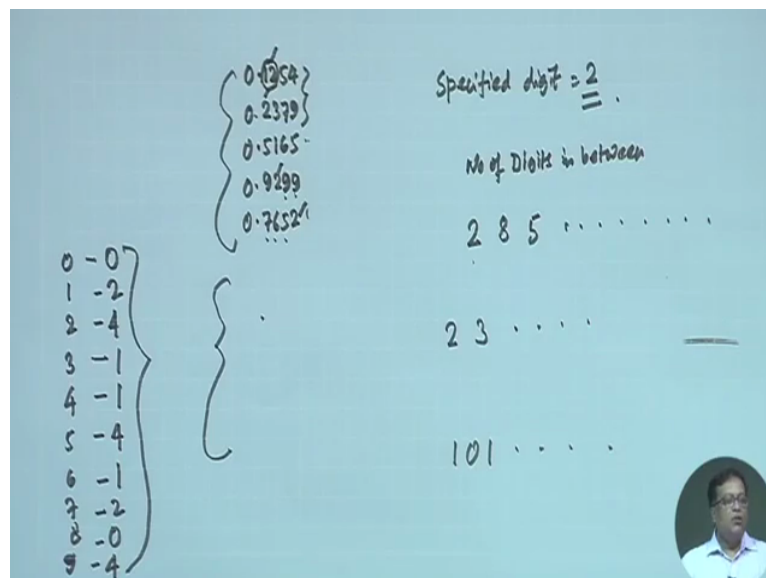 0.1254
0.2379
0.5165
0.9299
0.7652
Specified digit = 2.
No of Digits in between
2 8 5 . . . . . . . .
2 3 . . . .
101 . . . .
0 - 0
1 - 2
2 - 4
3 - 1
4 - 1
5 - 4
6 - 1
7 - 2
8 - 0
9 - 4